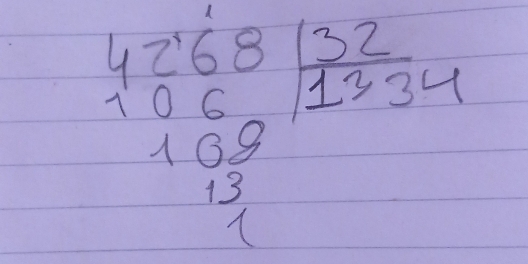 4268 32
106 1334
108
13
1